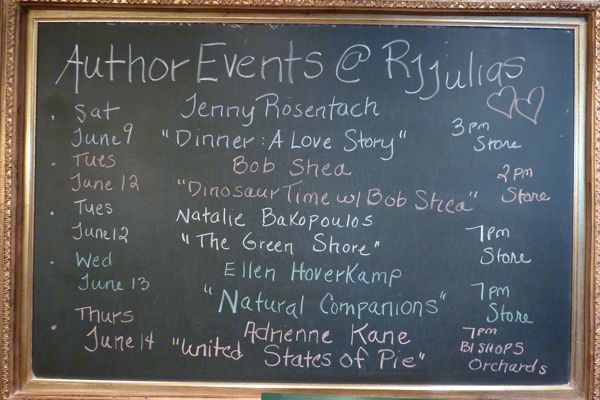 Author Events @ RJ Julias
Sat Jenny Rosentach
June 9 "Dinner: A Love Story" 3pm Store
Tues Bob Shea
June 12 "Dinosaur Time w/ Bob Shea" 2pm Store
Tues Natalie Bakopoulos
June 12 "The Green Shore" 7pm Store
Wed Ellen HoverKamp
June 13 "Natural Companions" 7pm Store
Thurs Adrienne Kane
June 14 "United States of Pie" 7pm BISHOPS Orchards